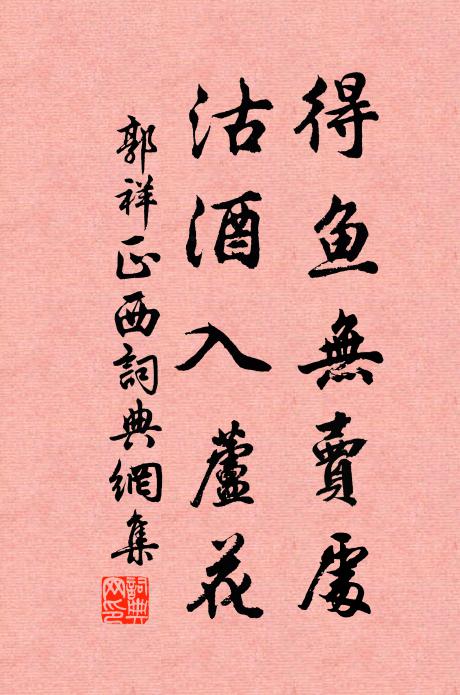 得魚無賣處
沽酒入蘆花
郭祥正西詞典網集
詞典網印